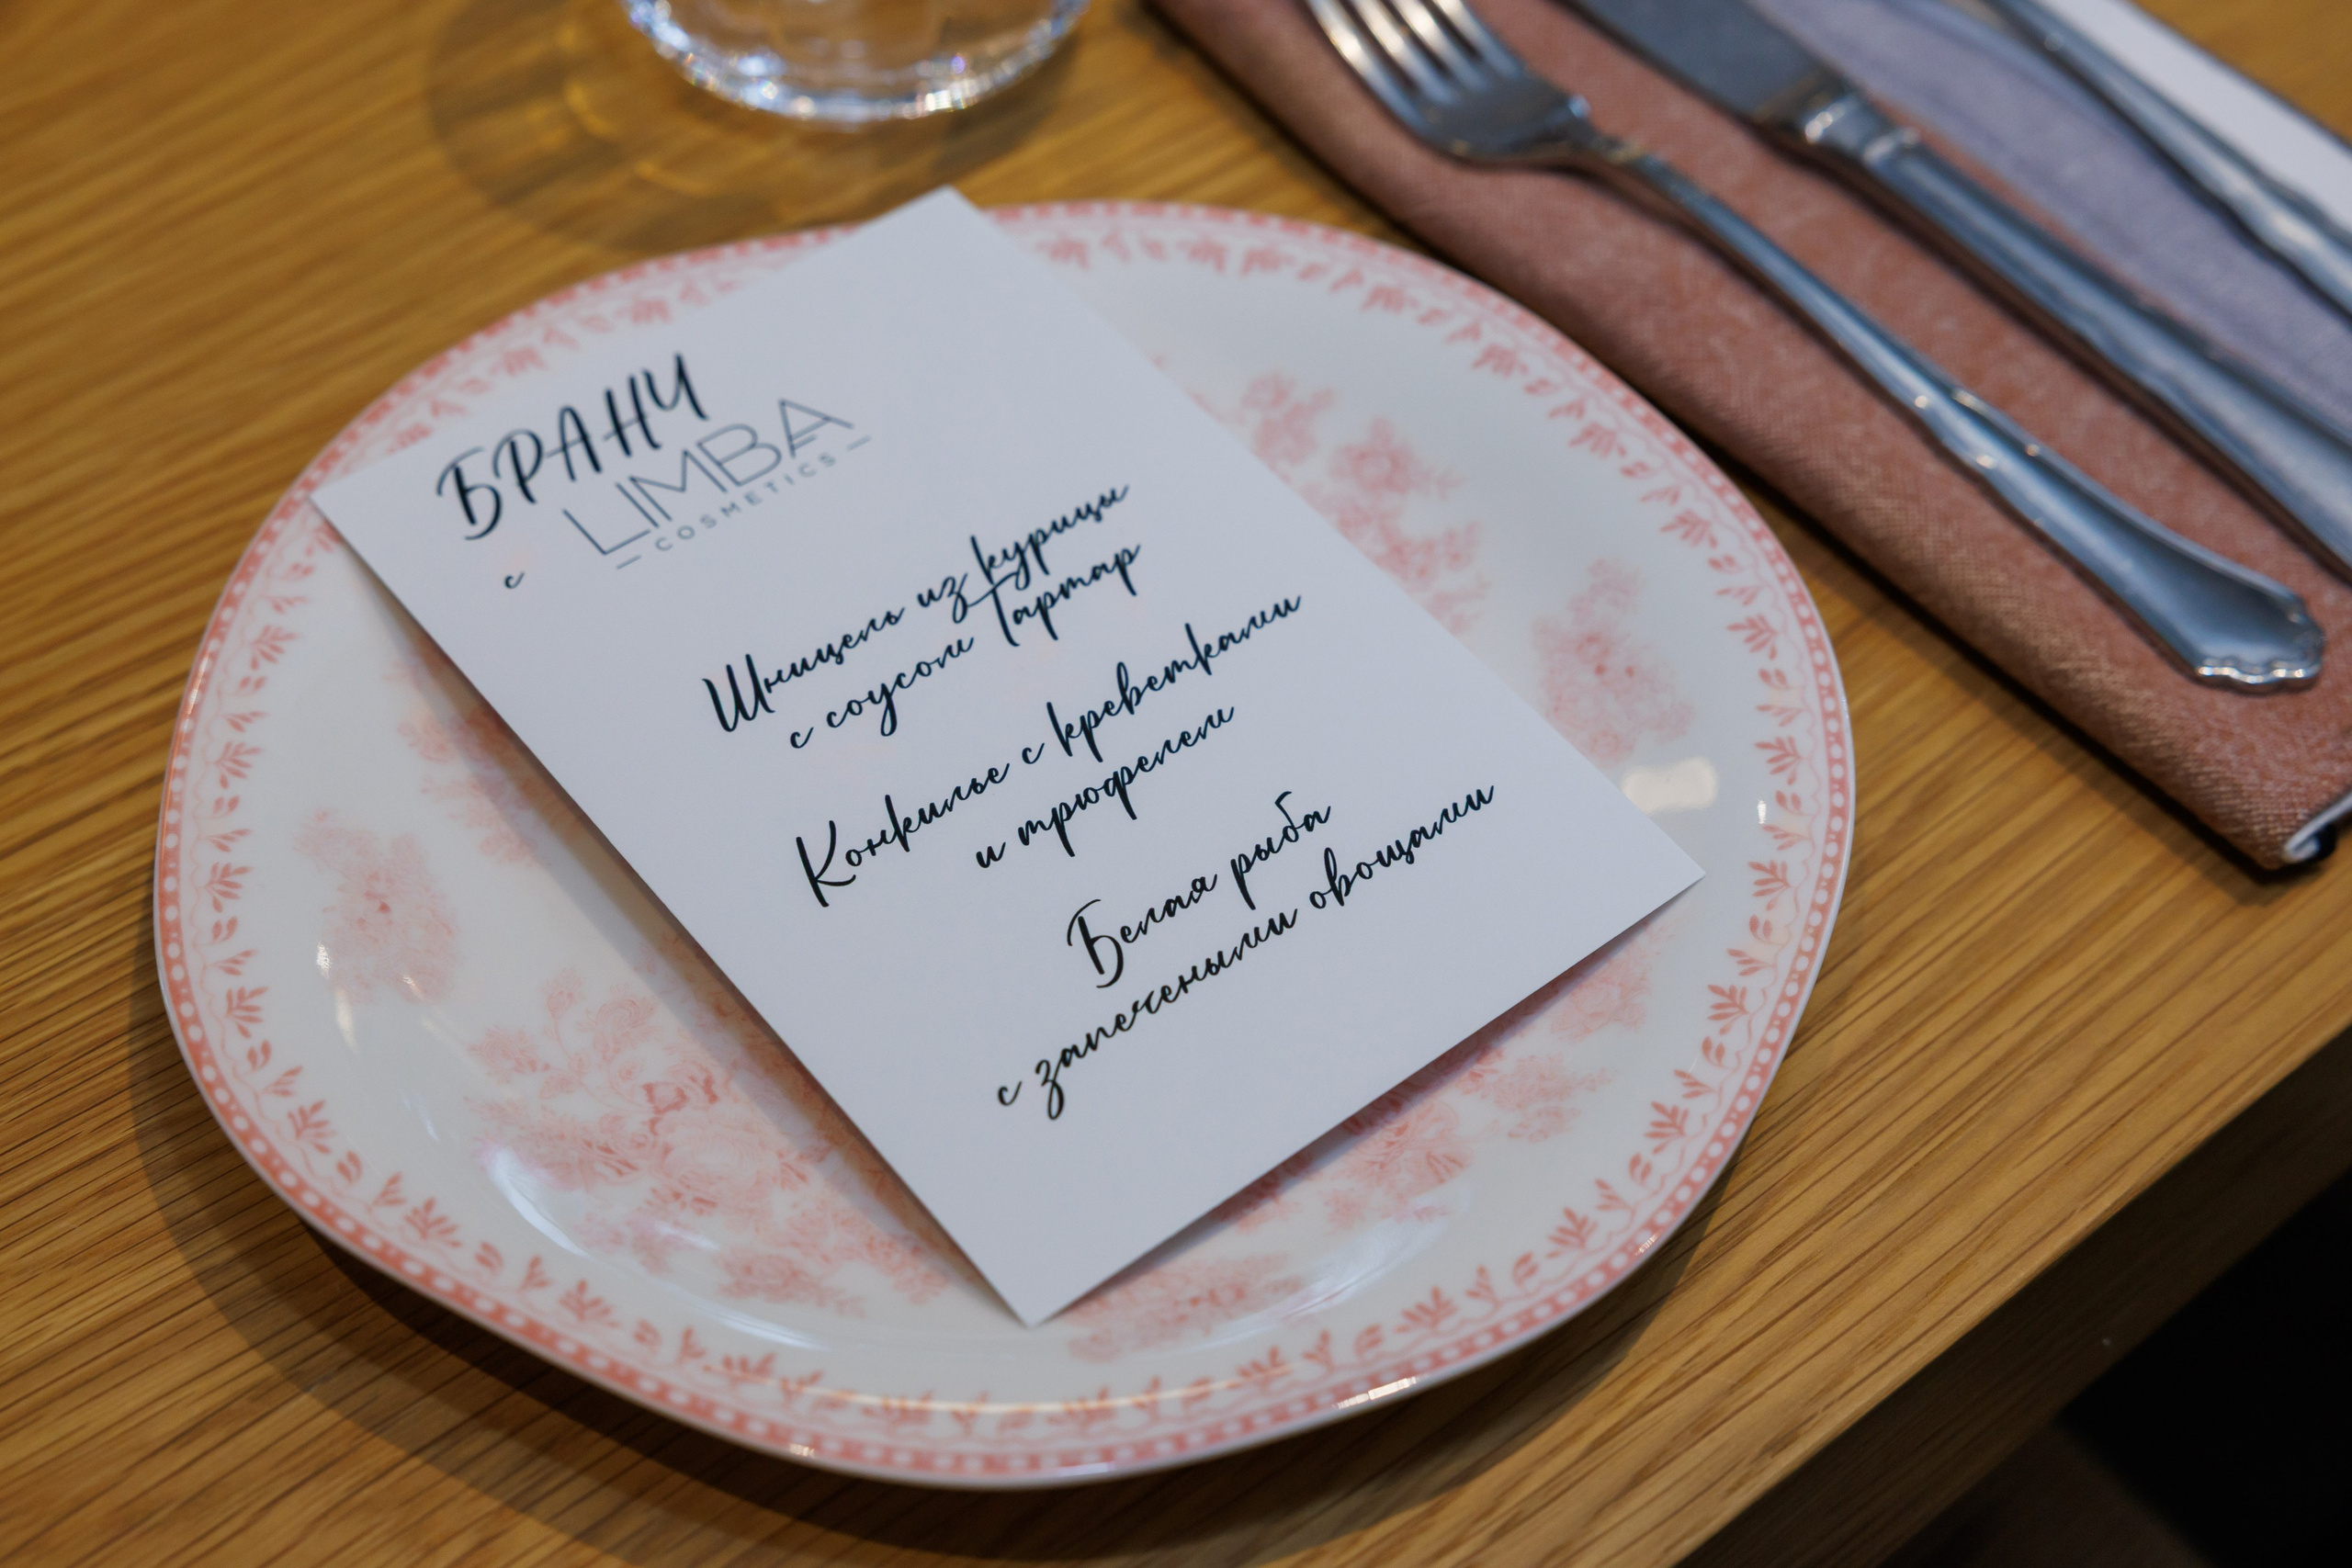 БРАНЧ
с LIMBA
COSMETICS
Шницель из курицы
с соусом Тартар
Конкилье с креветками
и трюфелем
Белая рыба
с запечеными овощами